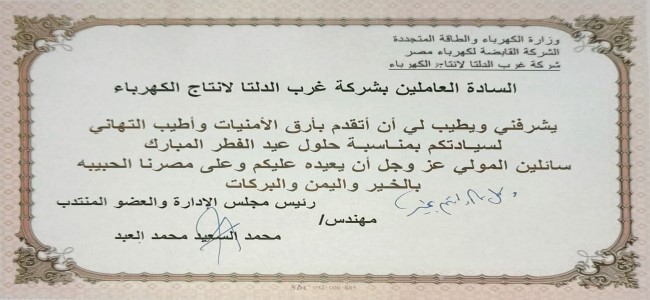 وزارة الكهرباء والطاقة المتجددة
الشركة القابضة لكهرباء مصر
شركة غرب الدلتا لانتاج الكهرباء
السادة العاملين بشركة غرب الدلتا لانتاج الكهرباء
يشرفني ويطيب لي أن أتقدم بأرق الأمنيات وأطيب التهاني
لسيادتكم بمناسبة حلول عيد الفطر المبارك
سائلين المولي عز وجل أن يعيده عليكم وعلى مصرنا الحبيبه
بالخير واليمن والبركات
وكل عام وانتم بخير
رئيس مجلس الإدارة والعضو المنتدب
مهندس/
محمد السعيد محمد العبد